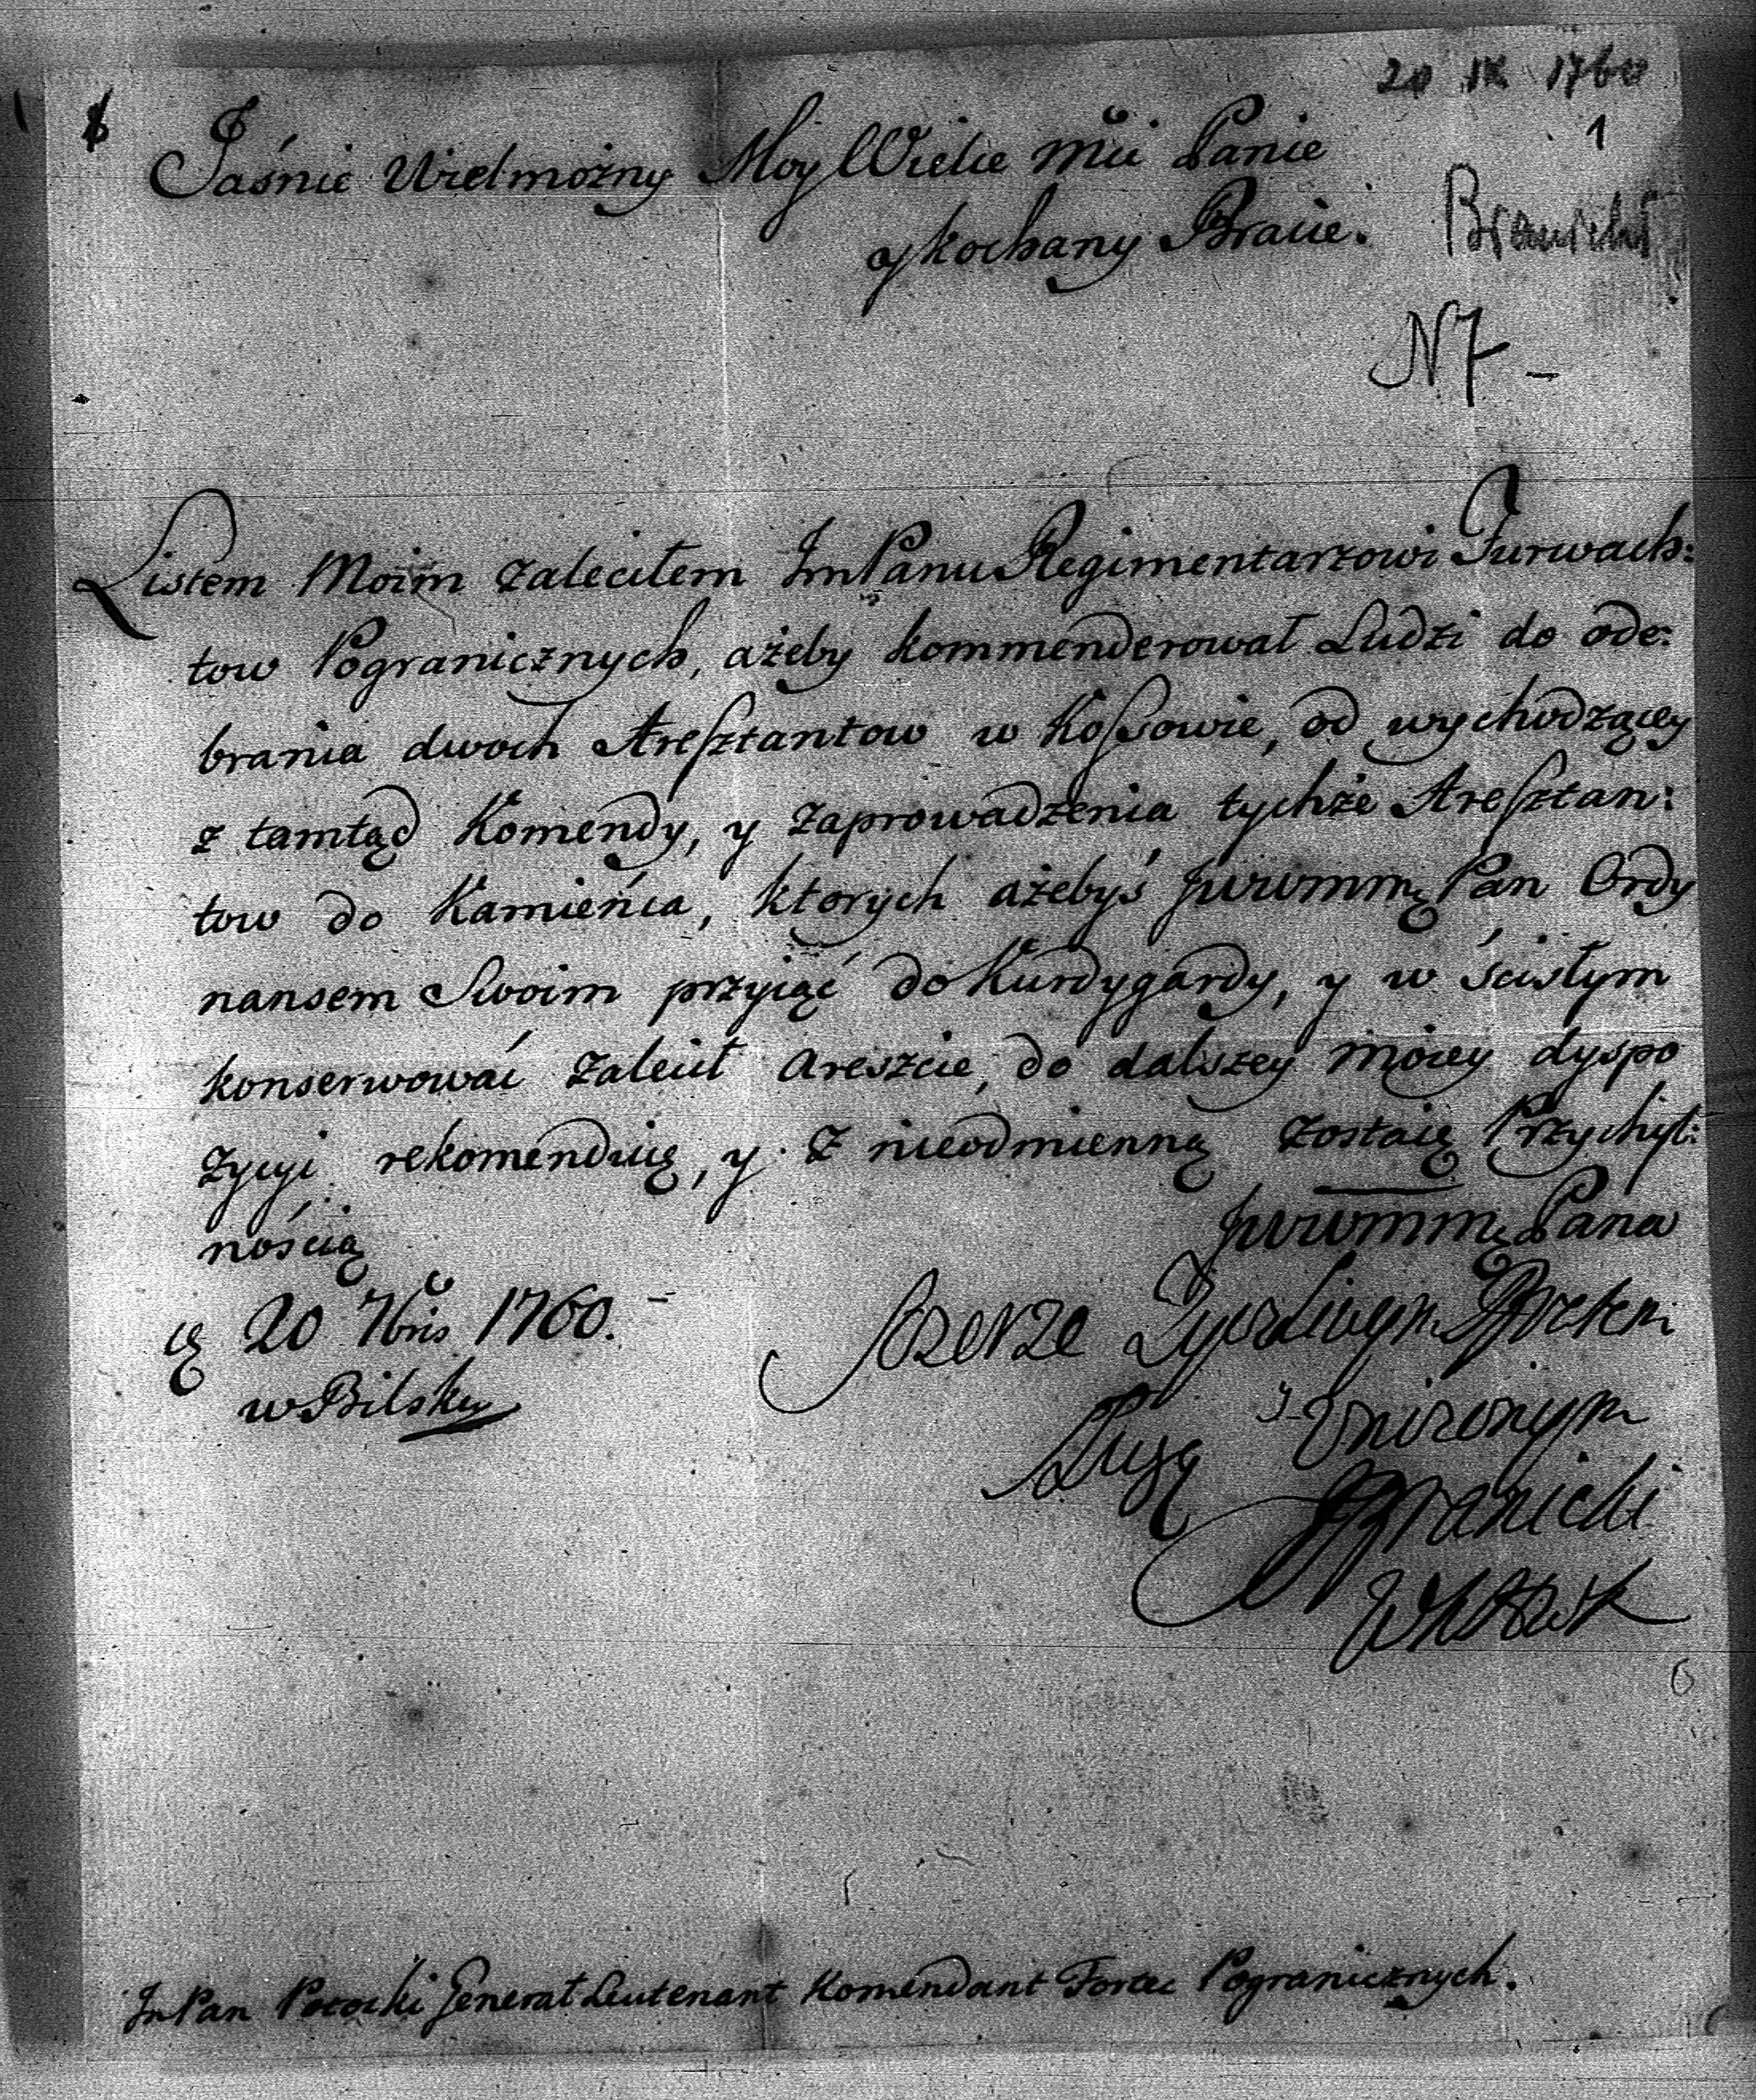 20 IX 1760
1
Jaśnie Wielmożny Moy Wielce Mci Panie
y kochany Bracie.
Branicki
N 7 -
Listem Moim zaleciłem JmPanu Regimentarzowi Furwach:
tow Pogranicznych, ażeby kommenderował Ludzi do ode:
brania dwoch Aresztantow w Kossowie, od wychodzącey
z tamtąd Komendy, y zaprowadzenia tychże Aresztan:
tow do Kamieńca, ktorych ażebyś JWWMM Pan Ordy
nansem Swoim przyiąć do Kurdygardy, y w ścisłym
konserwować zalecił areszcie, do dalszey moiey dyspo
zycyi rekomenduię, y z nieodmienną zostaię Przychyl:
nością
JWWMM Pana
20 7bris 1760.
w Bilsku
Szczerze Zyczliwym Bratem
y Uniżonym
Sługą
Branicki
JmPan Potocki Generał Leutenant Komendant Fortec Pogranicznych.